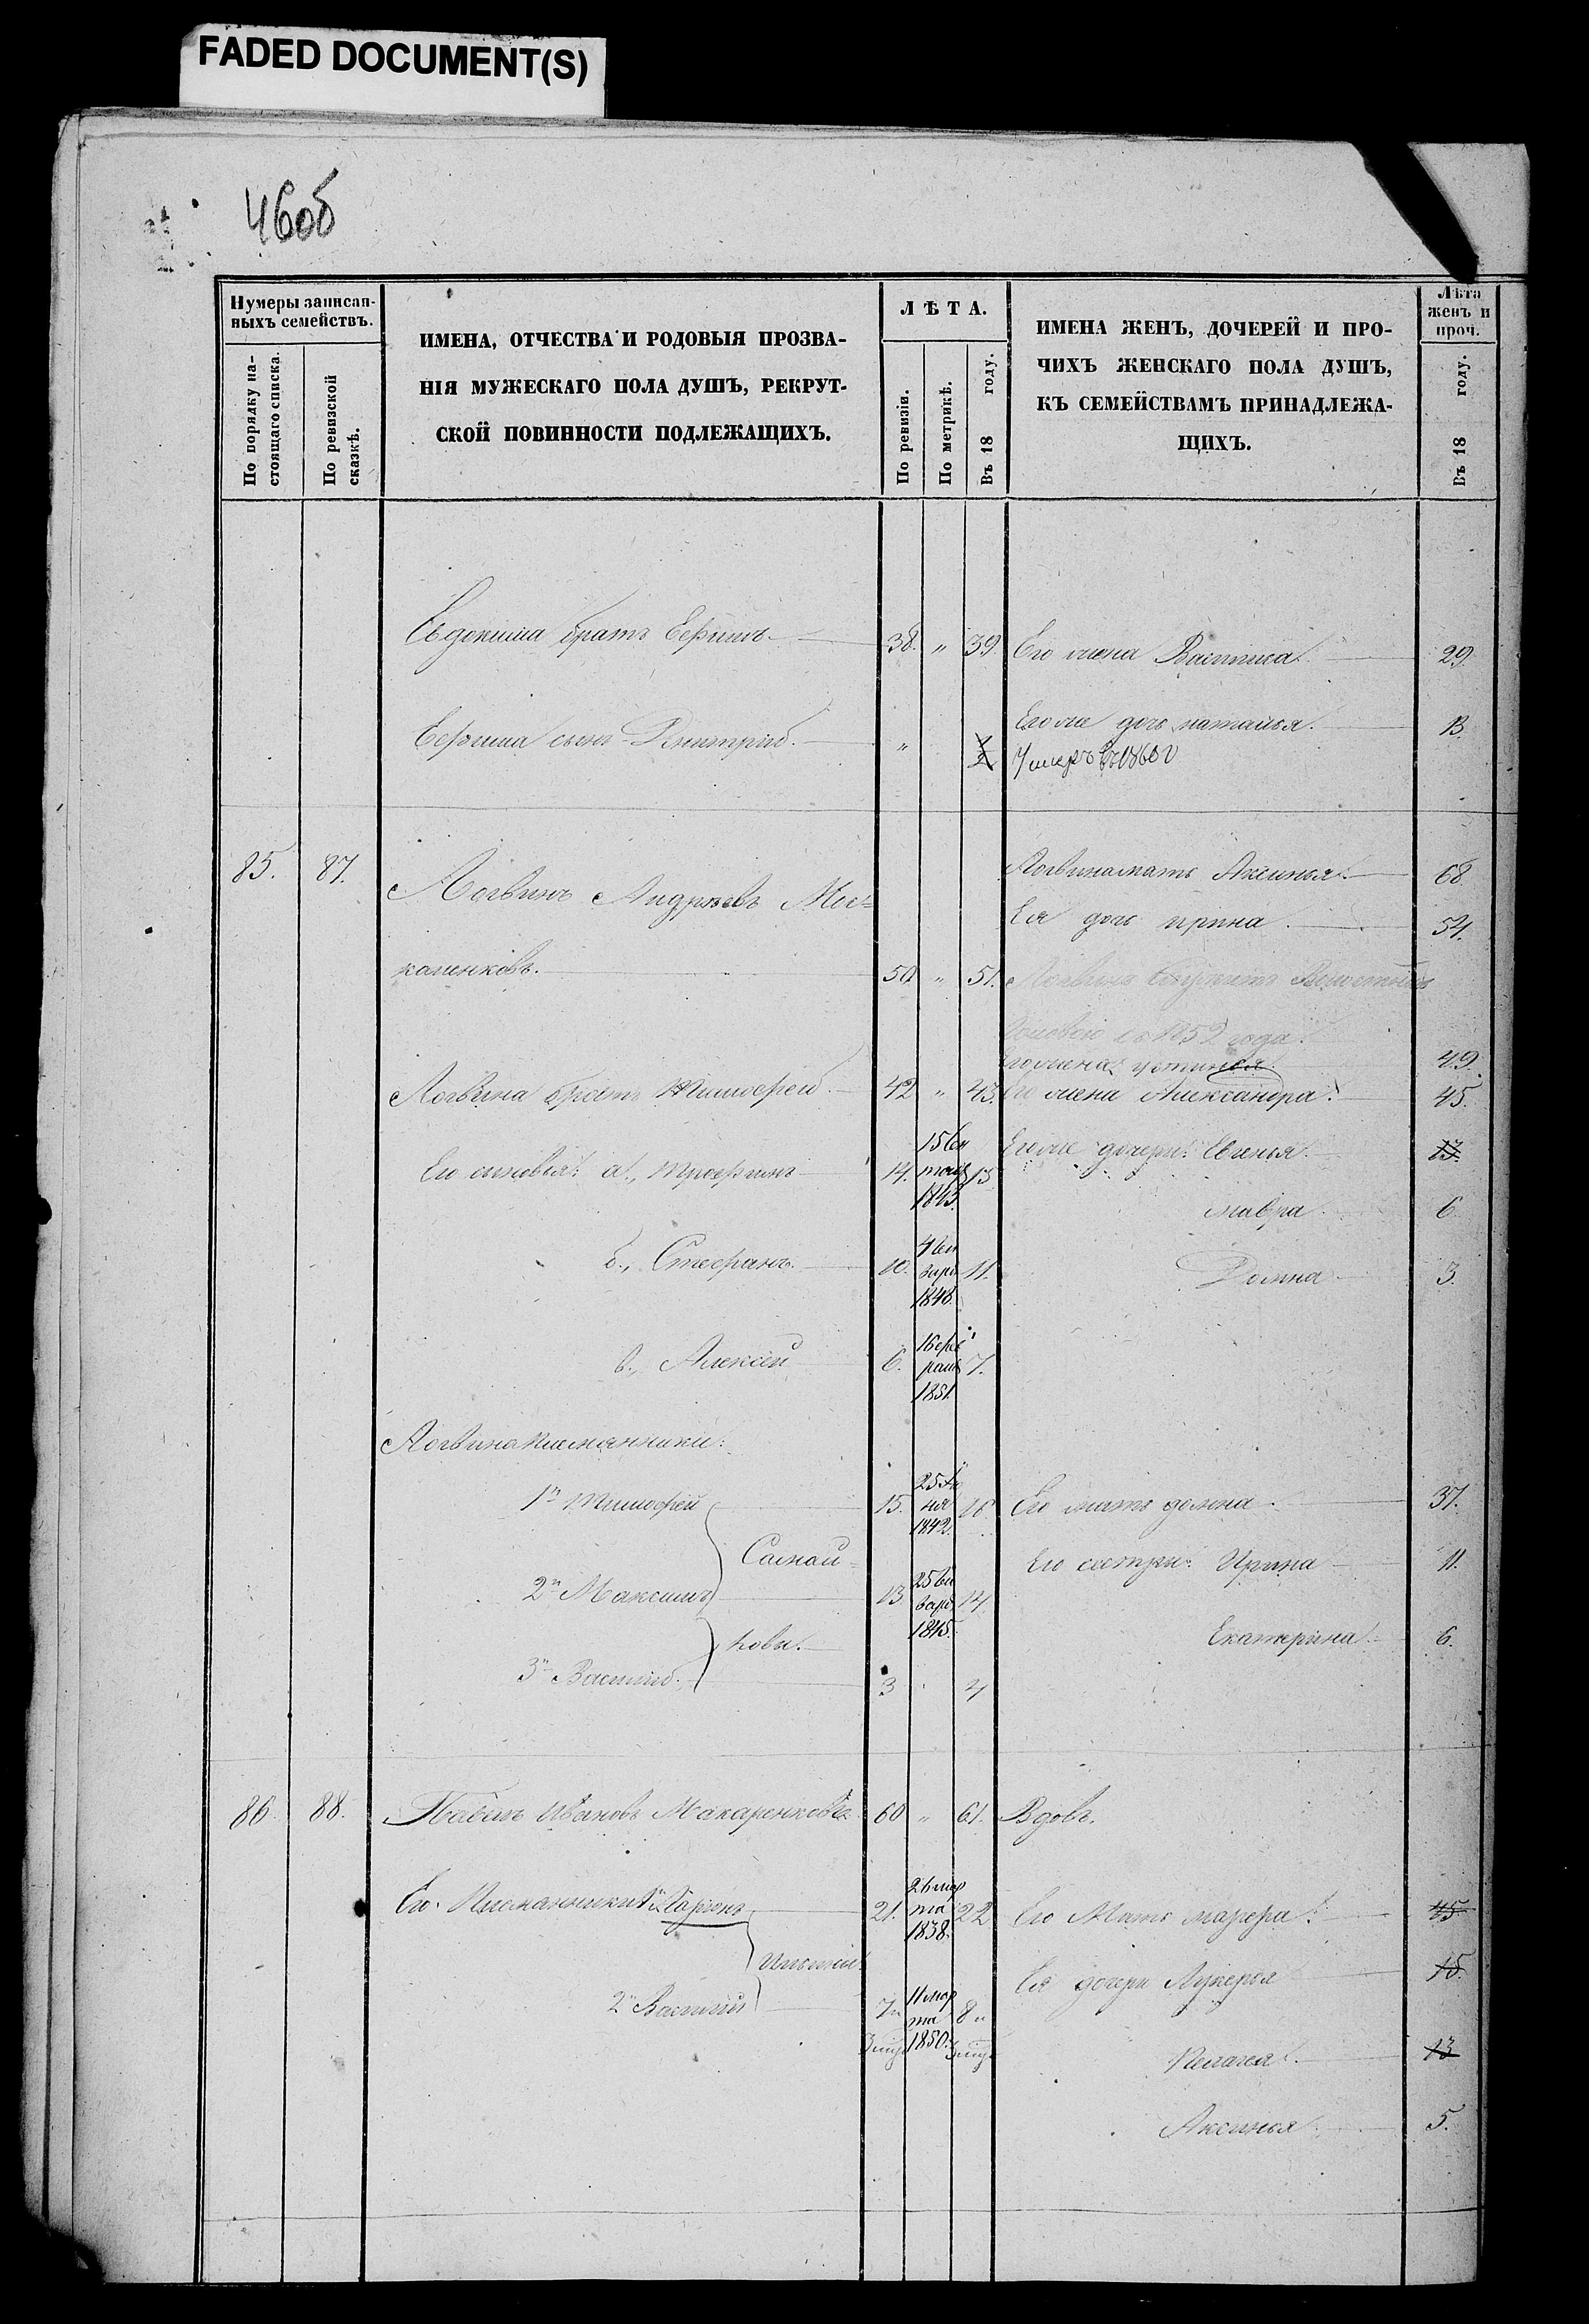 FADED DOCUMENT(S)
46об
Нумеры записан-
ныхъ семействъ.
По порядку на-
стоящаго списка.
По ревизской
сказкѣ.
ИМЕНА, ОТЧЕСТВА И РОДОВЫЯ ПРОЗВА-
НІЯ МУЖЕСКАГО ПОЛА ДУШЪ, РЕКРУТ-
СКОЙ ПОВИННОСТИ ПОДЛЕЖАЩИХЪ.
ЛѢТА.
По ревизіи.
По метрикѣ.
Въ 18 году.
ИМЕНА ЖЕНЪ, ДОЧЕРЕЙ И ПРО-
ЧИХЪ ЖЕНСКАГО ПОЛА ДУШЪ,
КЪ СЕМЕЙСТВАМЪ ПРИНАДЛЕЖА-
ЩИХЪ.
Лѣта
женъ и
проч.
Въ 18 году.
Евдокима братъ Ефимъ 38. " 39 Его жена Василиса 29.
Ефима сынъ Дмитрій. " Его же дочь наталья. 13.
Умеръ въ 1860 г
85. 87. Логвинъ Андреевъ
Логвина мать Аксинья 68
Ея дочь ирина 54.
50 " 51. Логвинъ служитъ
1859 года.
Его жена устинья 49.
Логвина братъ Тимофей 42 " 43. Его жена Александра. 45.
Его сыновья: а., Трофимъ 14. 15 1843. Его же дочери: Евгенья 13.
мавра 6
б., Стефанъ. 10. 4 1848. 11. Домна 3.
в., Алексѣй 6. 16 фев
раля 1851 7.
Логвина племянники:
1й Тимофей 15. 25 1842. 16 Его мать домна. 37.
2й Максимъ 13 25 1845. 14. Его сестры: Ирина 11.
Екатерина 6.
3й Василій. 3 4
86. 88. Павелъ Ивановъ Макаренковъ 60 " 61. Вдовъ.
Его Племянники 1й 21. 24 мар
та 1838. 22 Его Мать марфа. 45
Ильины
Ея дочери Лукерья 15.
2й Василій 7 11 мар
та 1850. 8
Пелагея. 13
Аксинья 5.